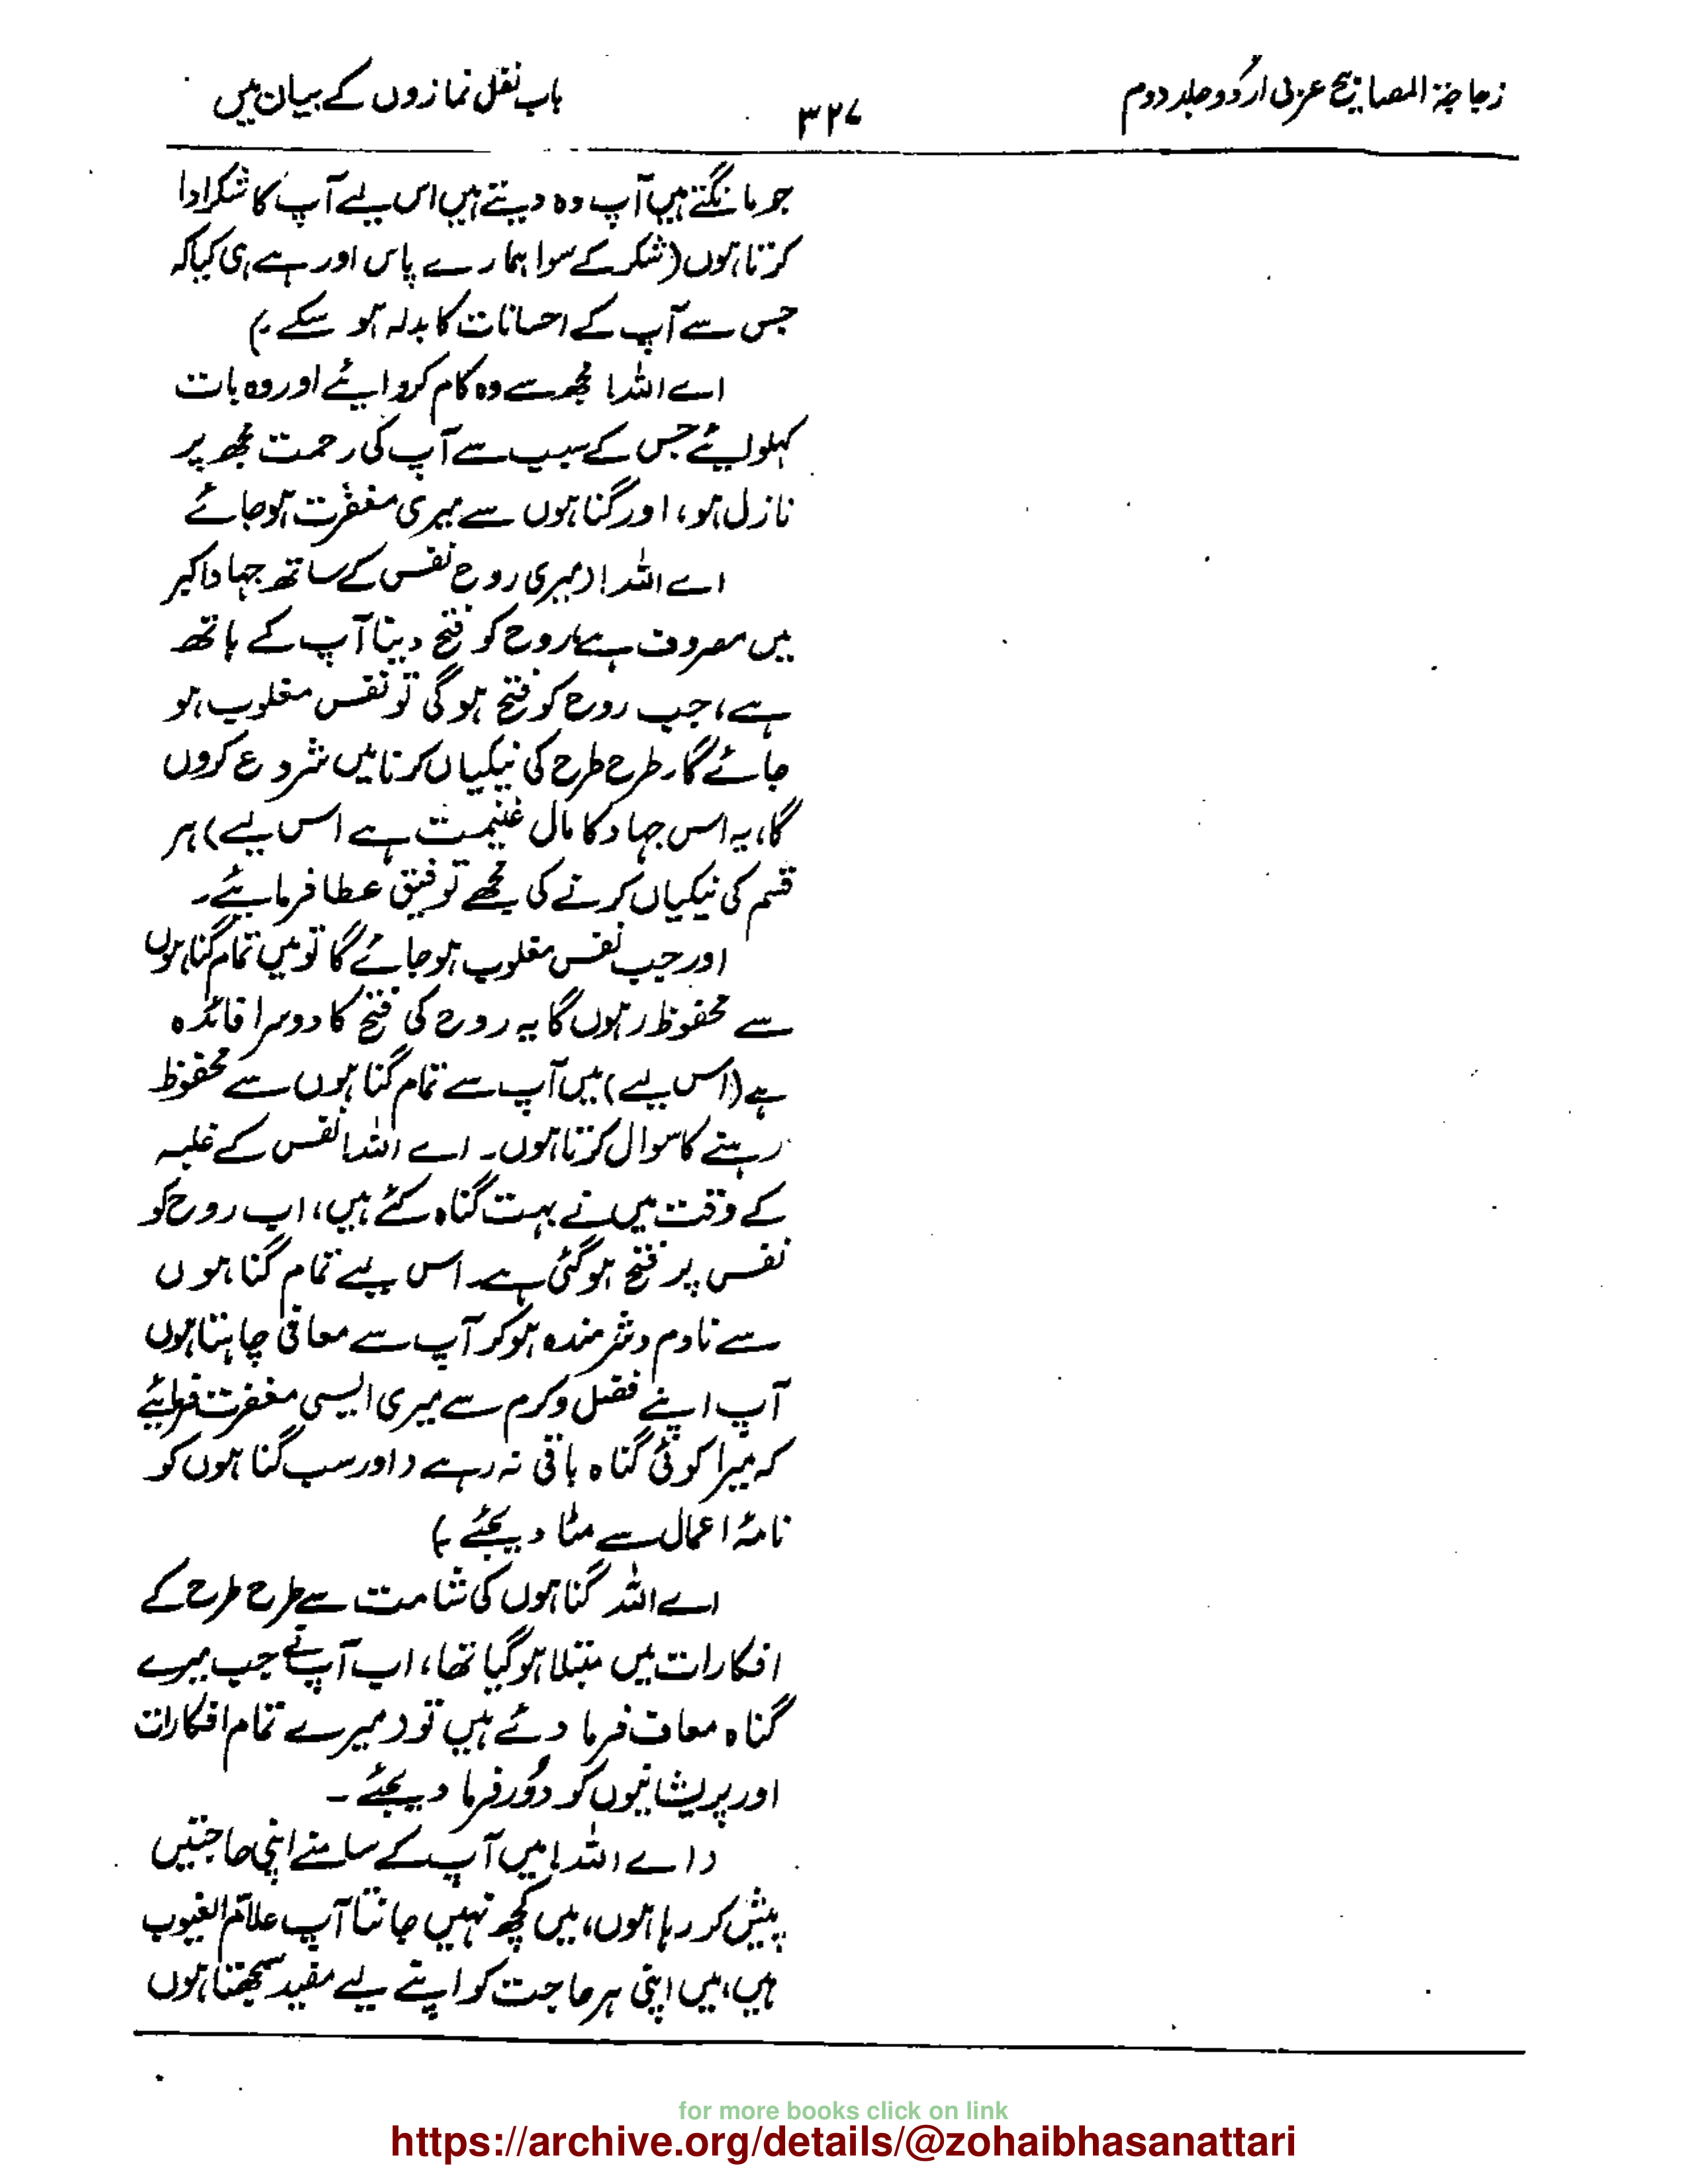 زجاجۃ المصابیح عربی اردو جلد دوم
۳۲۷
باب نفل نمازوں کے بیان میں
جو مانگتے ہیں آپ وہ دیتے ہیں اس لیے آپ کا شکر ادا
کرتا ہوں (شکر کے سوا ہمارے پاس اور ہے ہی کیا کہ
جس سے آپ کے احسانات کا بدلہ ہو سکے۔)
اے اللہ! مجھ سے وہ کام کروایئے اور وہ بات
کہلوایئے جس کے سبب سے آپ کی رحمت مجھ پر
نازل ہو، اور گناہوں سے میری مغفرت ہو جائے
اے اللہ! (میری روح نفس کے ساتھ جہاد اکبر
میں مصروف ہے، روح کو فتح دینا آپ کے ہاتھ
ہے، جب روح کو فتح ہو گی تو نفس مغلوب ہو
جائے گا۔ طرح طرح کی نیکیاں کرنا میں شروع کروں
گا، یہ اس جہاد کا مال غنیمت ہے اس لیے) ہر
قسم کی نیکیاں کرنے کی مجھے توفیق عطا فرمایئے۔
اور جب نفس مغلوب ہو جائے گا تو میں تمام گناہوں
سے محفوظ رہوں گا یہ روح کی فتح کا دوسرا فائدہ
ہے (اس لیے) میں آپ سے تمام گناہوں سے محفوظ
رہنے کا سوال کرتا ہوں۔ اے اللہ! نفس کے غلبہ
کے وقت میں نے بہت گناہ کئے ہیں، اب روح کو
نفس پر فتح ہو گئی ہے۔ اس لیے تمام گناہوں
سے نادم و شرمندہ ہو کر آپ سے معافی چاہتا ہوں
آپ اپنے فضل و کرم سے میری ایسی مغفرت فرمایئے
کہ میرا کوئی گناہ باقی نہ رہے (اور سب گناہوں کو
نامۂ اعمال سے مٹا دیجئے۔)
اے اللہ گناہوں کی شامت سے طرح طرح کے
افکارات میں مبتلا ہو گیا تھا، اب آپ نے جب میرے
گناہ معاف فرما دئے ہیں تو (میرے تمام افکارات
اور پریشانیوں کو دُور فرما دیجئے۔
(اے اللہ! میں آپ کے سامنے اپنی حاجتیں
پیش کر رہا ہوں، میں کچھ نہیں جانتا آپ علّام الغیوب
ہیں، میں اپنی ہر حاجت کو اپنے لیے مفید سمجھتا ہوں
for more books click on link
https://archive.org/details/@zohaibhasanattari